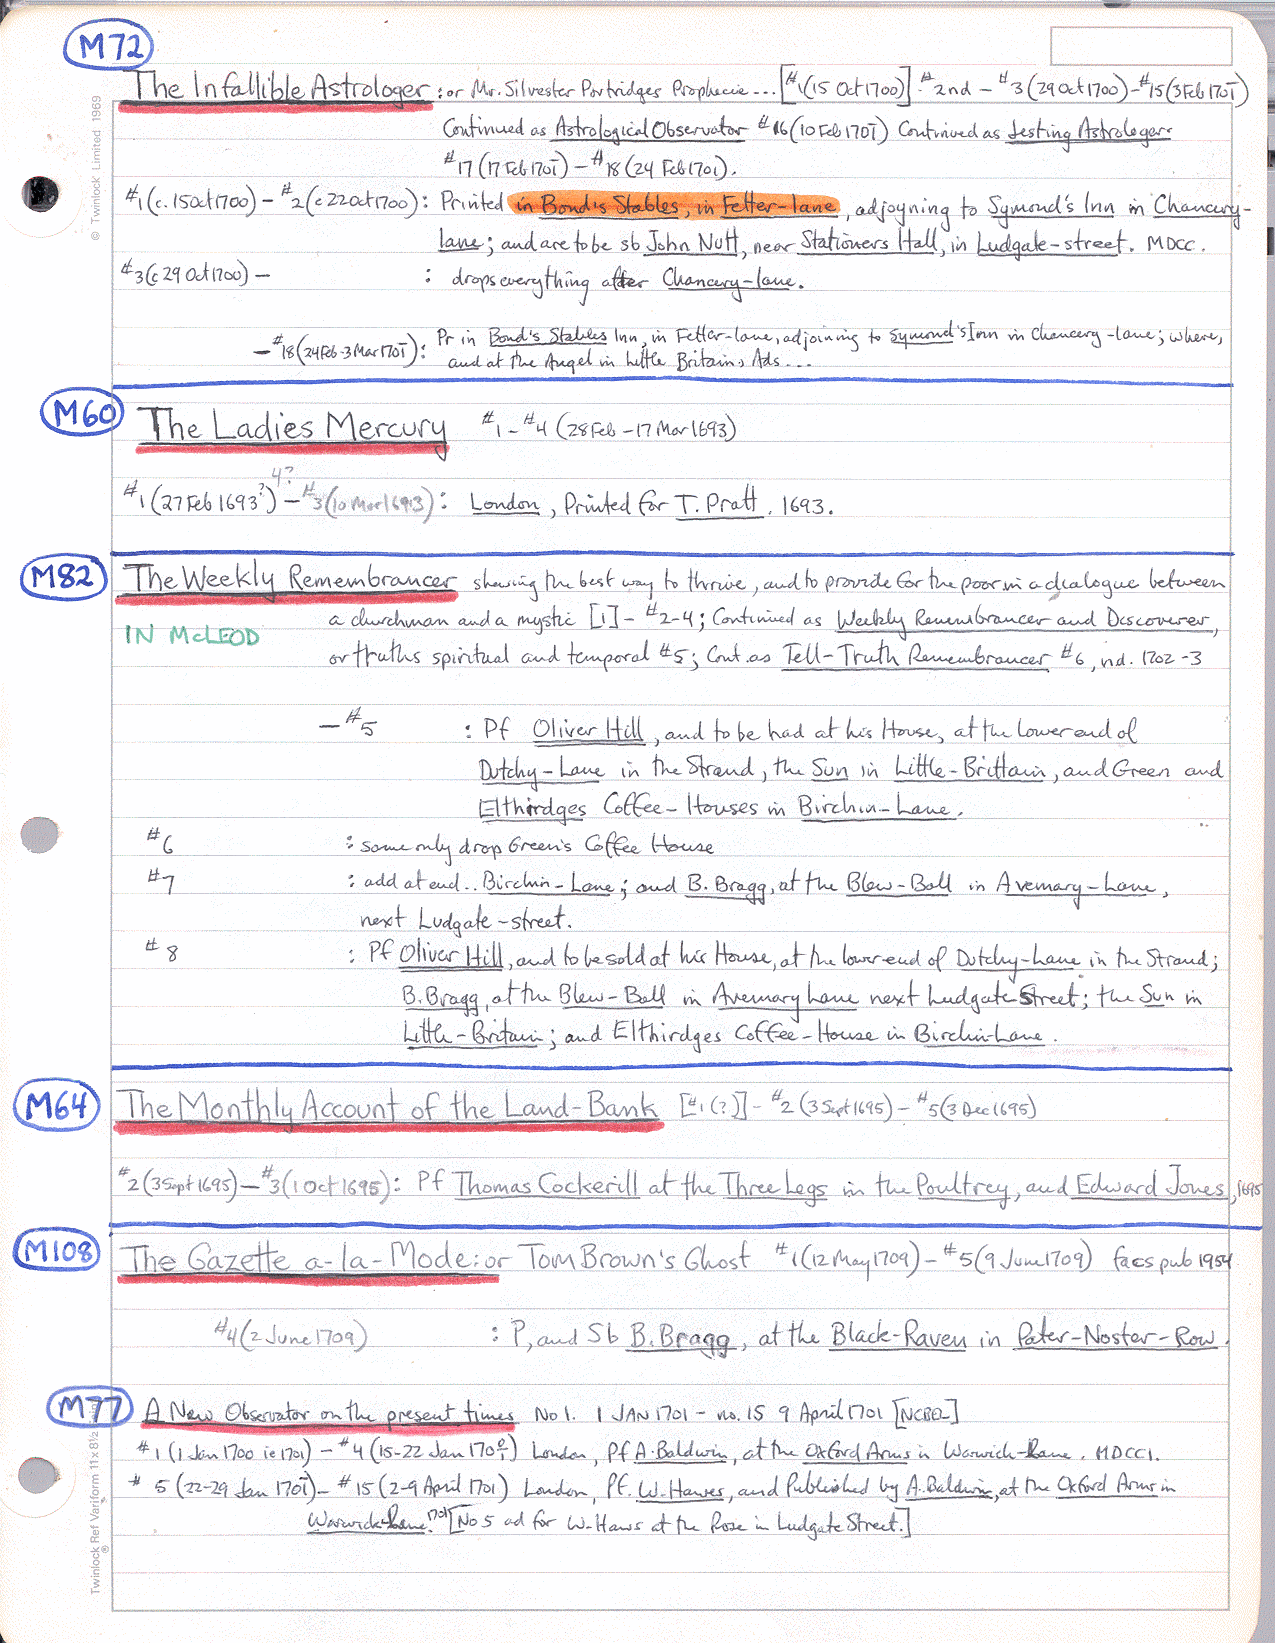 M72
The Infallible Astrologer : or Mr. Silvester Partridges Prophecie ... [#1(15 Oct 1700)] - #2nd - #3(29 Oct 1700) - #15(3 Feb 170 1̄)
Continued as Astrological Observator #16(10 Feb 170 1̄) Continued as Jesting Astrologer
#17(17 Feb 170 1̄) - #18(24 Feb 1701).
#1(c. 15 Oct 1700) - #2(c 22 Oct 1700) : Printed in Bond's Stables, in Fetter-lane, adjoyning to Symond's Inn in Chancery-
lane; and are to be sb John Nutt, near Stationers Hall, in Ludgate-street. MDCC.
#3(c 29 Oct 1700) - : drops everything after Chancery-lane.
- #18(24 Feb-3 Mar 170 1̄) : Pr in Bond's Stables Inn, in Fetter-lane, adjoining to Symond's Inn in Chancery-lane; where,
and at the Angel in Little Britain, Ads ...
M60
The Ladies Mercury #1 - #4 (28 Feb - 17 Mar 1693)
4?
#1(27 Feb 1693?) - #3(10 Mar 1693) : London, Printed for T. Pratt, 1693.
M82
The Weekly Remembrancer shewing the best way to thrive, and to provide for the poor in a dialogue between
a churchman and a mystic [1] - #2-4; Continued as Weekly Remembrancer and Discoverer,
IN McLEOD
or truths spiritual and temporal #5; Cont. as Tell-Truth Remembrancer #6, nd. 1702-3
- #5 : Pf Oliver Hill, and to be had at his House, at the lower end of
Dutchy-Lane in the Strand, the Sun in Little-Brittain, and Green and
Elthirdges Coffee-Houses in Birchin-Lane.
#6 : some only drop Green's Coffee House
#7 : add at end.. Birchin-Lane; and B. Bragg, at the Blew-Ball in Avemary-Lane,
next Ludgate-street.
#8 : Pf Oliver Hill, and to be sold at his House, at the lower-end of Dutchy-Lane in the Strand;
B. Bragg, at the Blew-Ball in Avemary Lane next Ludgate Street; the Sun in
Little-Britain; and Elthirdges Coffee-House in Birchin-Lane.
M64
The Monthly Account of the Land-Bank [#1(?)] - #2(3 Sept 1695) - #5(3 Dec 1695)
#2(3 Sept 1695) - #3(1 Oct 1695) : Pf Thomas Cockerill at the Three Legs in the Poultrey, and Edward Jones, 1695
M108
The Gazette a-la-Mode: or Tom Brown's Ghost #1(12 May 1709) - #5(9 June 1709) facs pub 1954
#4(2 June 1709) : P, and Sb B. Bragg, at the Black-Raven in Pater-Noster-Row.
M77
A New Observator on the present times No 1. 1 JAN 1701 - no. 15 9 April 1701 [NCBEL]
#1(1 Jan 1700 ie 1701) - #4(15-22 Jan 170 0/1) London, Pf A. Baldwin, at the Oxford Arms in Warwick-Lane. MDCCI.
#5(22-29 Jan 170 1̄) - #15(2-9 April 1701) London, Pf. W. Hawes, and Published by A. Baldwin, at the Oxford Arms in
Warwick-Lane. 1701 [No 5 ad for W. Haws at the Rose in Ludgate Street.]
© Twinlock Limited 1969
Twinlock Ref Variform 11 x 8½